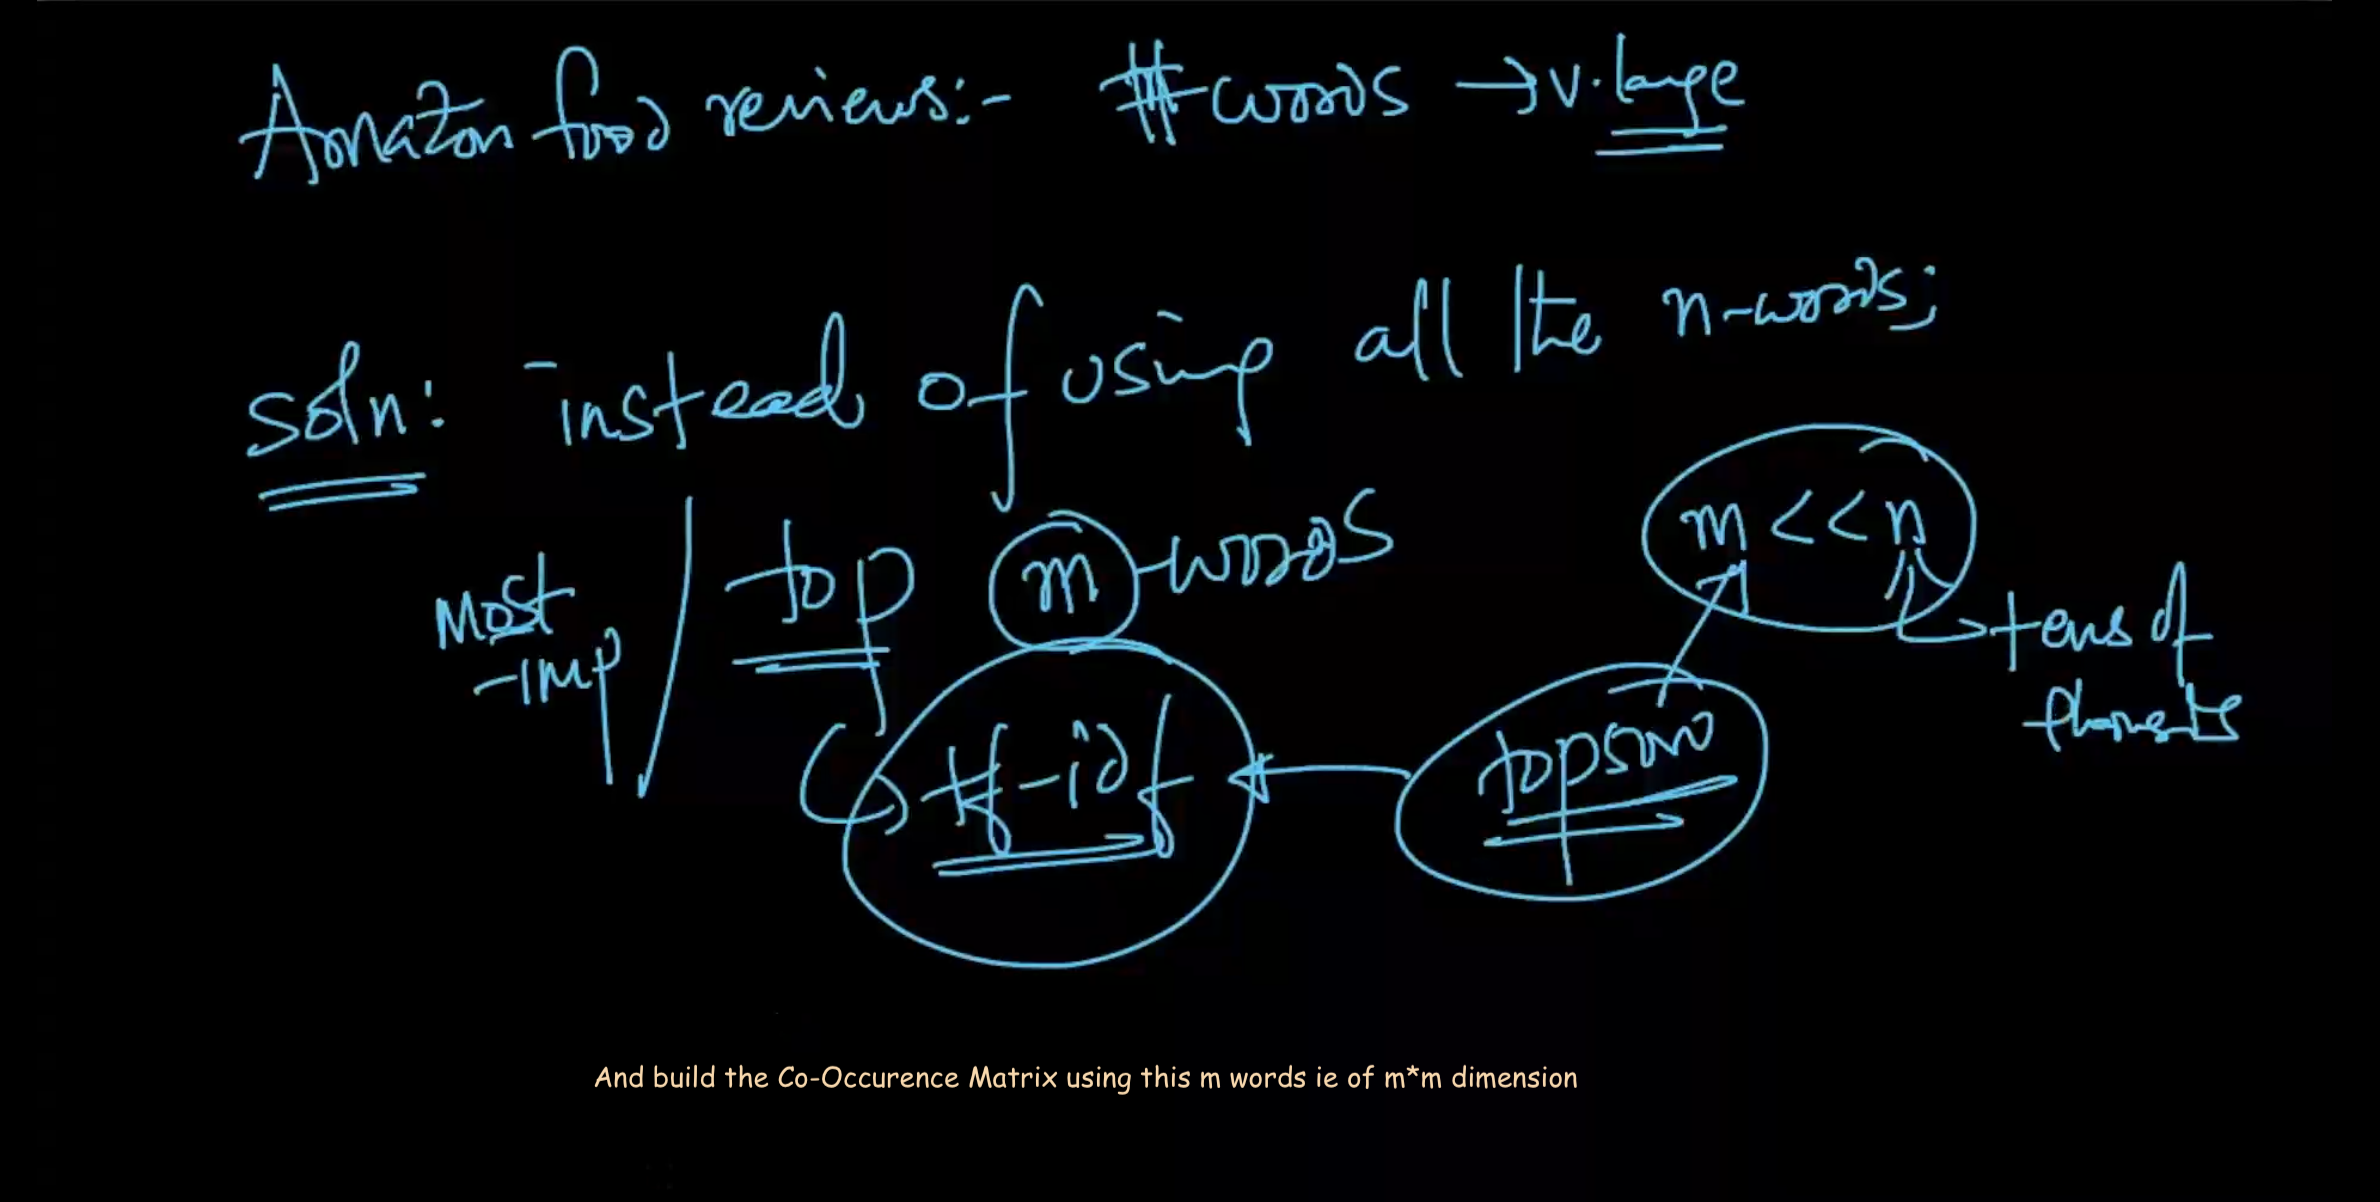 Amazon food reviews:- #words → v.large
soln: instead of using all the n-words;
Most
-imp
top m-words
m << n
tens of
tf-idf
top 5000
And build the Co-Occurence Matrix using this m words ie of m*m dimension